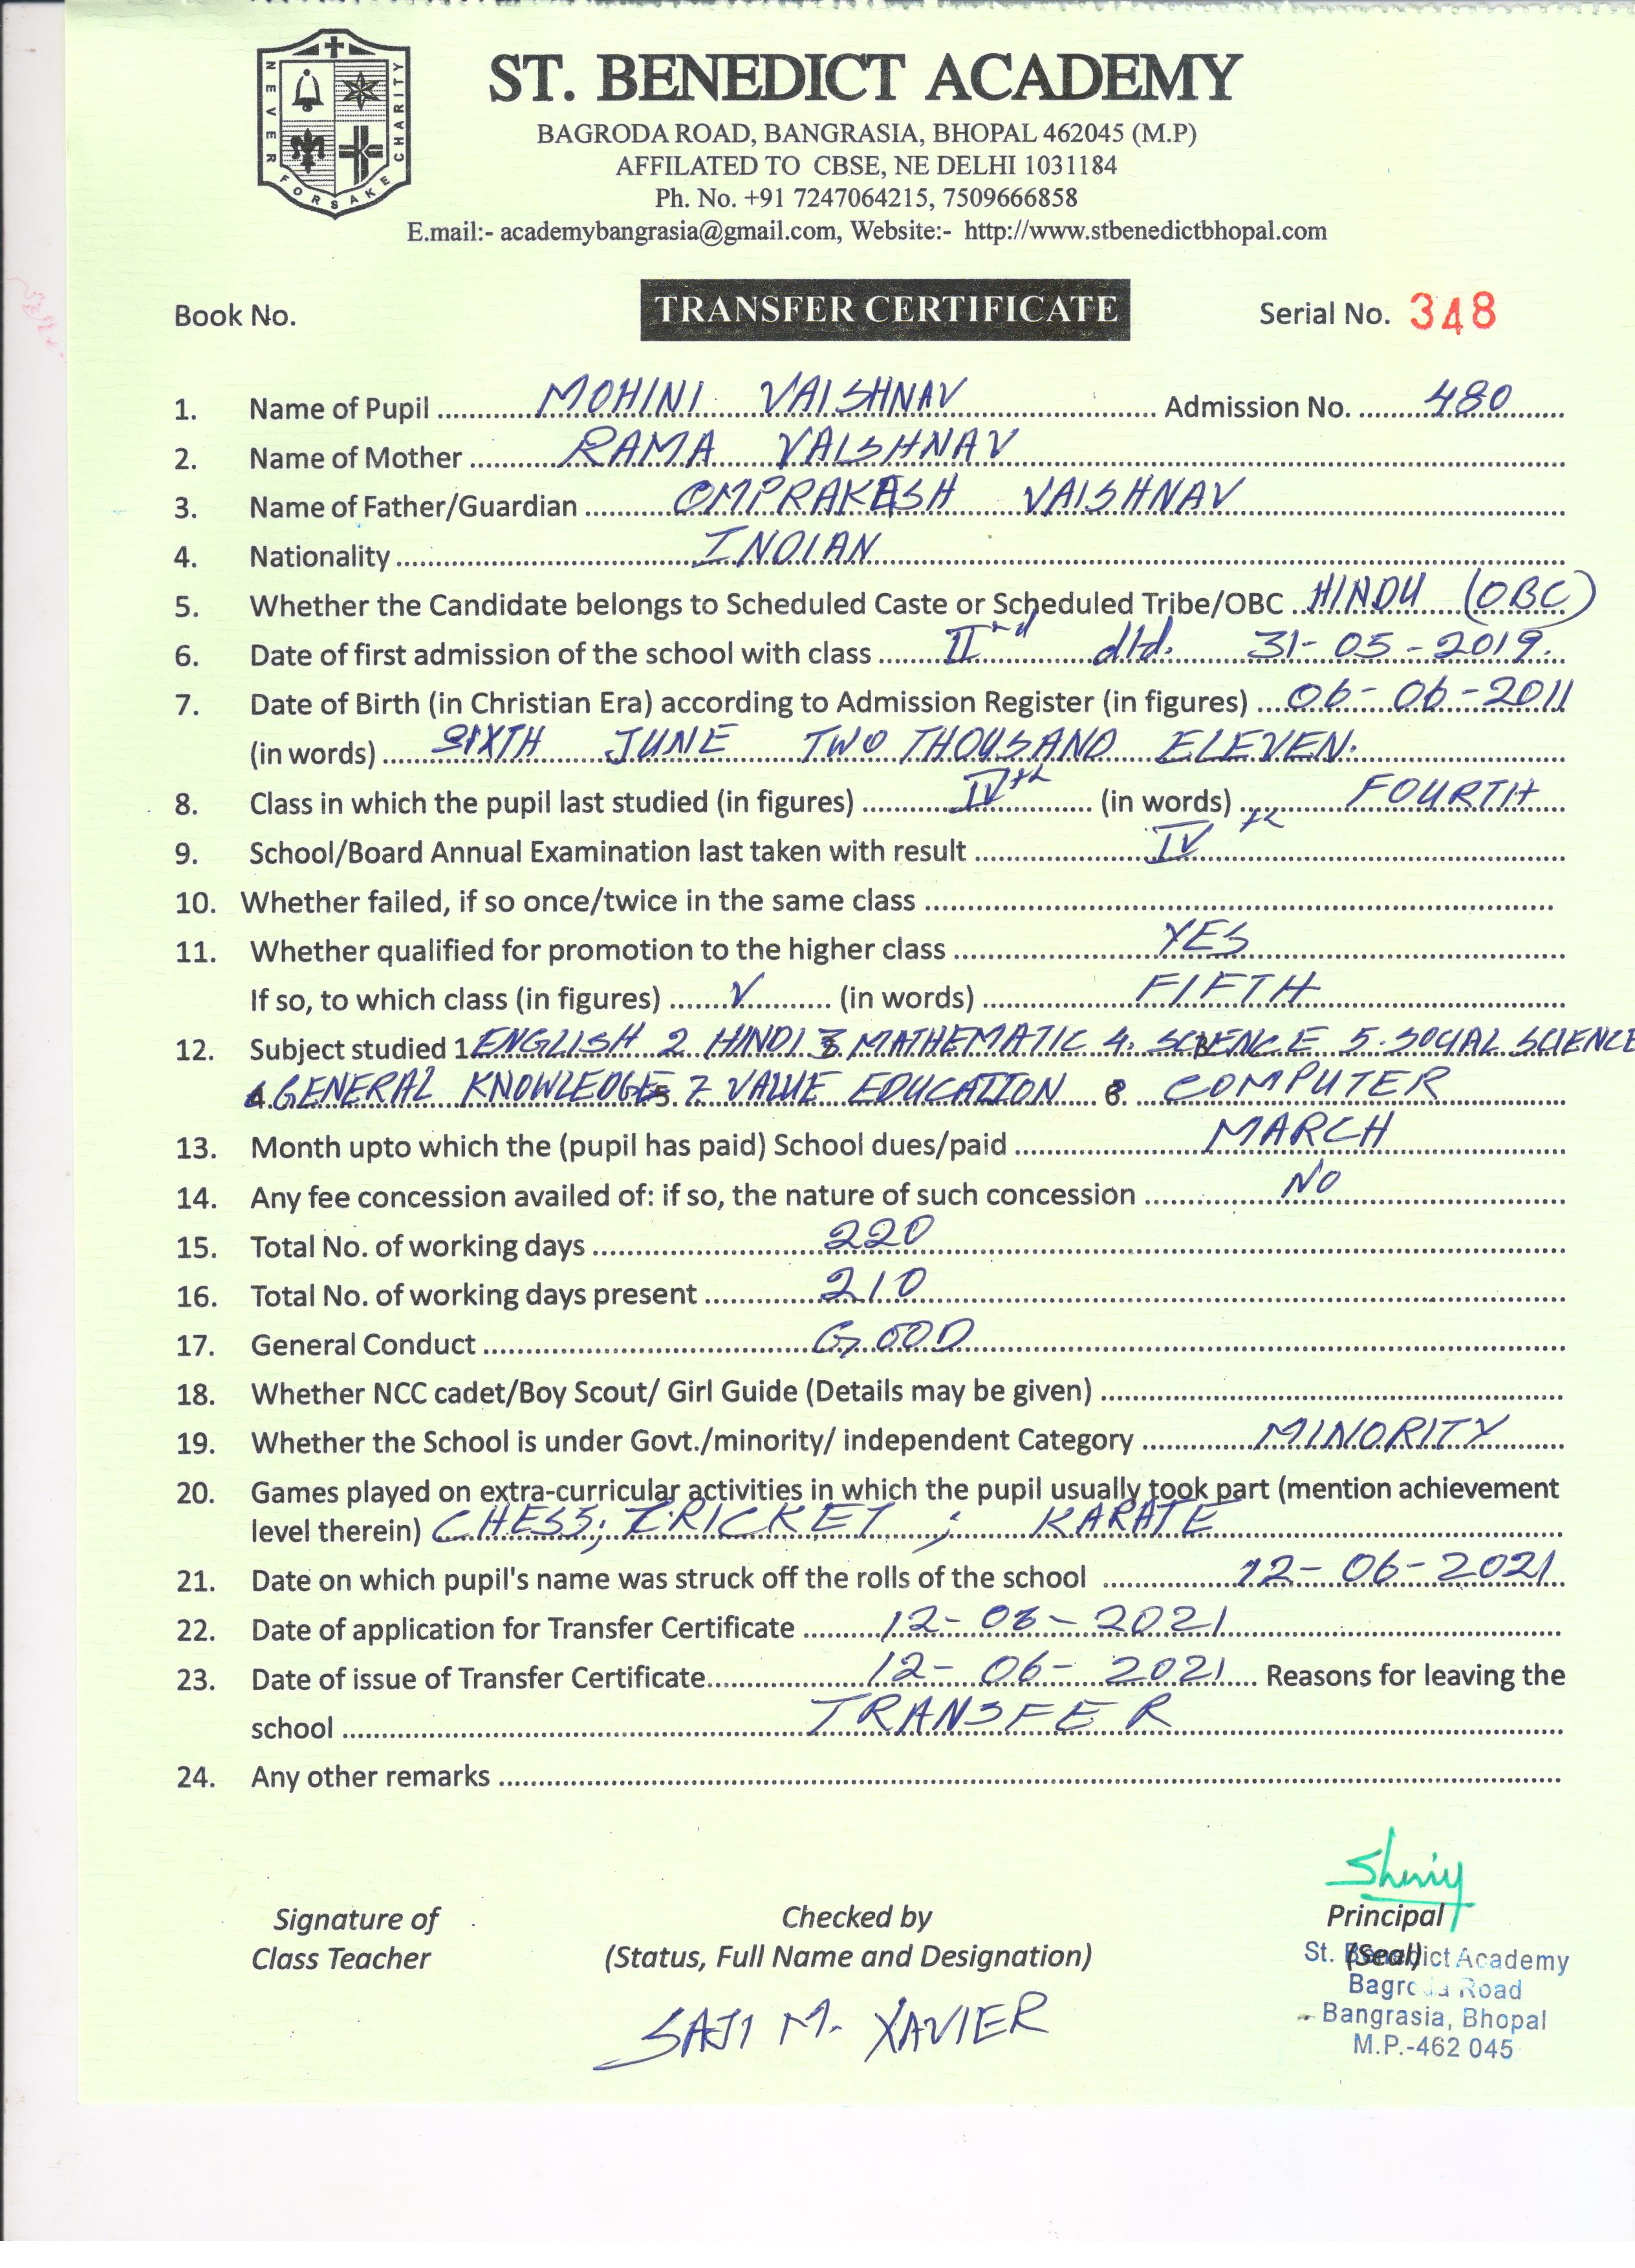 NEVER FORSAKE CHARITY
ST. BENEDICT ACADEMY
BAGRODA ROAD, BANGRASIA, BHOPAL 462045 (M.P)
AFFILATED TO CBSE, NE DELHI 1031184
Ph. No. +91 7247064215, 7509666858
E.mail:- academybangrasia@gmail.com, Website:- http://www.stbenedictbhopal.com
Book No. TRANSFER CERTIFICATE Serial No. 348
1. Name of Pupil MOHINI VAISHNAV Admission No. 480
2. Name of Mother RAMA VAISHNAV
3. Name of Father/Guardian OMPRAKASH VAISHNAV
4. Nationality INDIAN
5. Whether the Candidate belongs to Scheduled Caste or Scheduled Tribe/OBC HINDU (OBC)
6. Date of first admission of the school with class IInd dtd. 31-05-2019.
7. Date of Birth (in Christian Era) according to Admission Register (in figures) 06-06-2011
(in words) SIXTH JUNE TWO THOUSAND ELEVEN.
8. Class in which the pupil last studied (in figures) IVth (in words) FOURTH
9. School/Board Annual Examination last taken with result IVth
10. Whether failed, if so once/twice in the same class
11. Whether qualified for promotion to the higher class YES
If so, to which class (in figures) V (in words) FIFTH
12. Subject studied 1 ENGLISH 2 HINDI 3 MATHEMATIC 4. SCIENCE 5. SOCIAL SCIENCE
GENERAL KNOWLEDGE 7 VALUE EDUCATION 8. COMPUTER
13. Month upto which the (pupil has paid) School dues/paid MARCH
14. Any fee concession availed of: if so, the nature of such concession NO
15. Total No. of working days 220
16. Total No. of working days present 210
17. General Conduct GOOD
18. Whether NCC cadet/Boy Scout/ Girl Guide (Details may be given)
19. Whether the School is under Govt./minority/ independent Category MINORITY
20. Games played on extra-curricular activities in which the pupil usually took part (mention achievement
level therein) CHESS, CRICKET, KARATE
21. Date on which pupil's name was struck off the rolls of the school 12-06-2021
22. Date of application for Transfer Certificate 12-06-2021
23. Date of issue of Transfer Certificate 12-06-2021 Reasons for leaving the
school TRANSFER
24. Any other remarks
Signature of Checked by Principal
Class Teacher (Status, Full Name and Designation) (Seal)
St. Benedict Academy
Bagroda Road
Bangrasia, Bhopal
M.P.-462 045
SAJI M. XAVIER